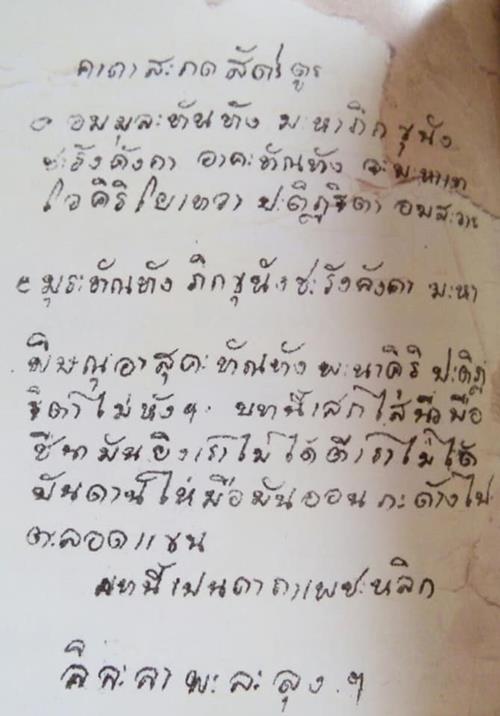 คาถา สะกด สัตรู
๑ อมมุละทันทัง มะหาภิกขุนัง
ชะรังคังคา อาคะทัณทัง
ไวคิริโยเทวา ปะติฏฐิตา อมสะวาห
๑ มุระทัณทัง ภิกขุนังชะรังคังคา มะหา
พิษณุอาสุคะทัณทัง พะนาคิริ ปะติฏ
ฐิตา ไม่หังๆ บทนี้เสกใส่นิ้วมือ
ชี้หน้ามันยิงเราไม่ได้ตีเราไม่ได้
บันดานให้มือมันออน กะด้างไป
ตะลอดแขน
บทนี้เปนคาถาเพชะหลิก
สิสะลา พะละลุงๆ